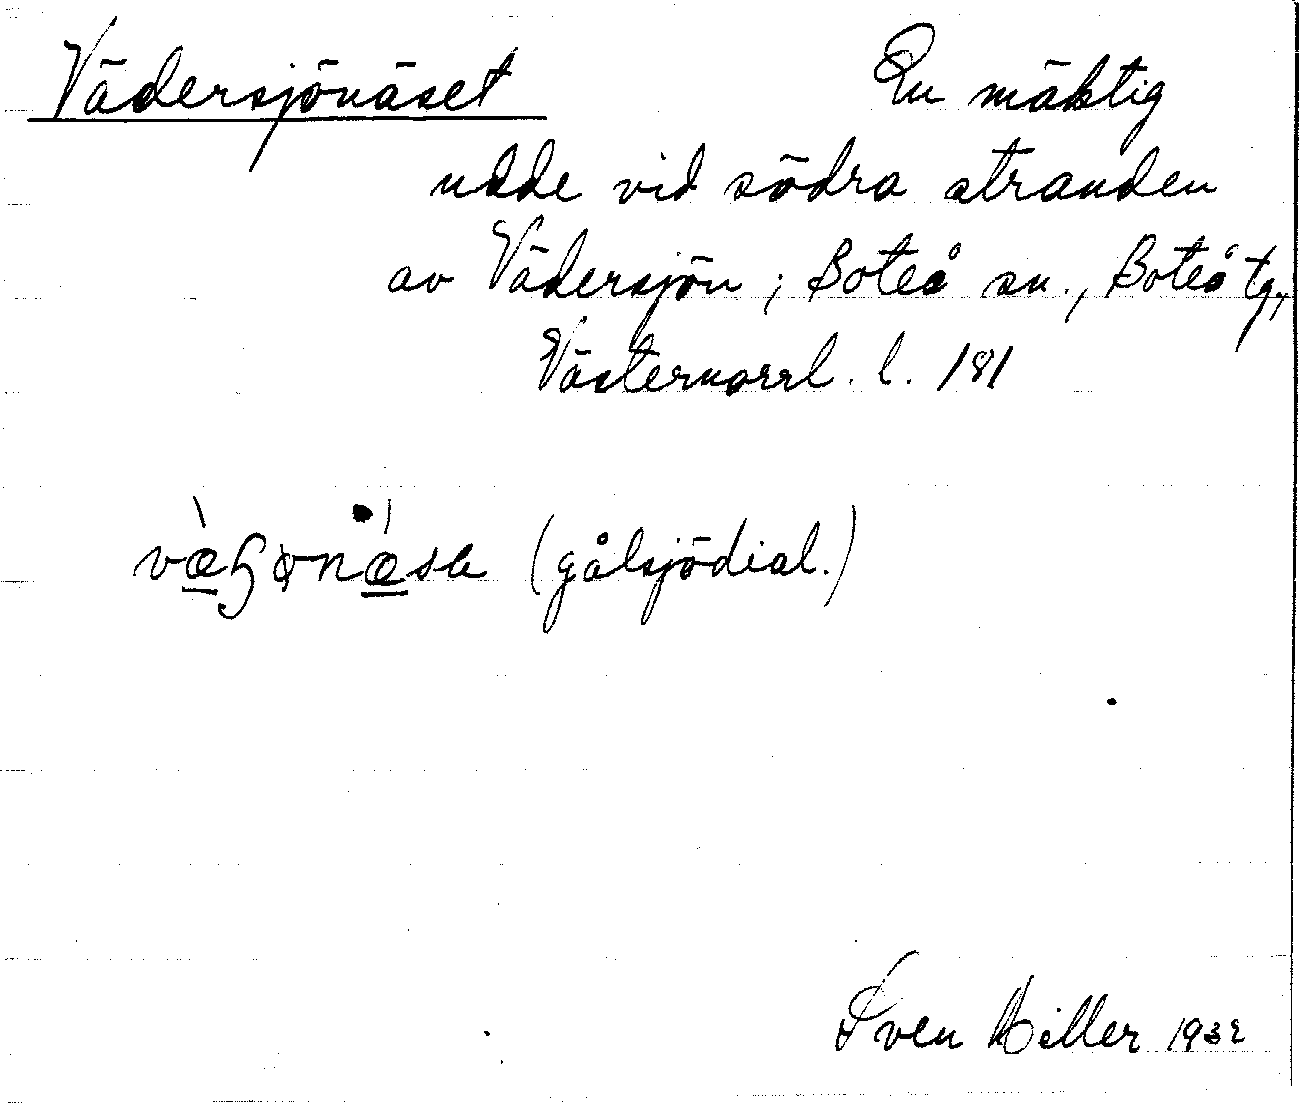 Vädersjönäset En mäktig
udde vid södra stranden
av Vädersjön; Boteå sn., Boteå tg.,
Västernorrl. l. 181
(gålsjödial.)
Sven Hiller 1932